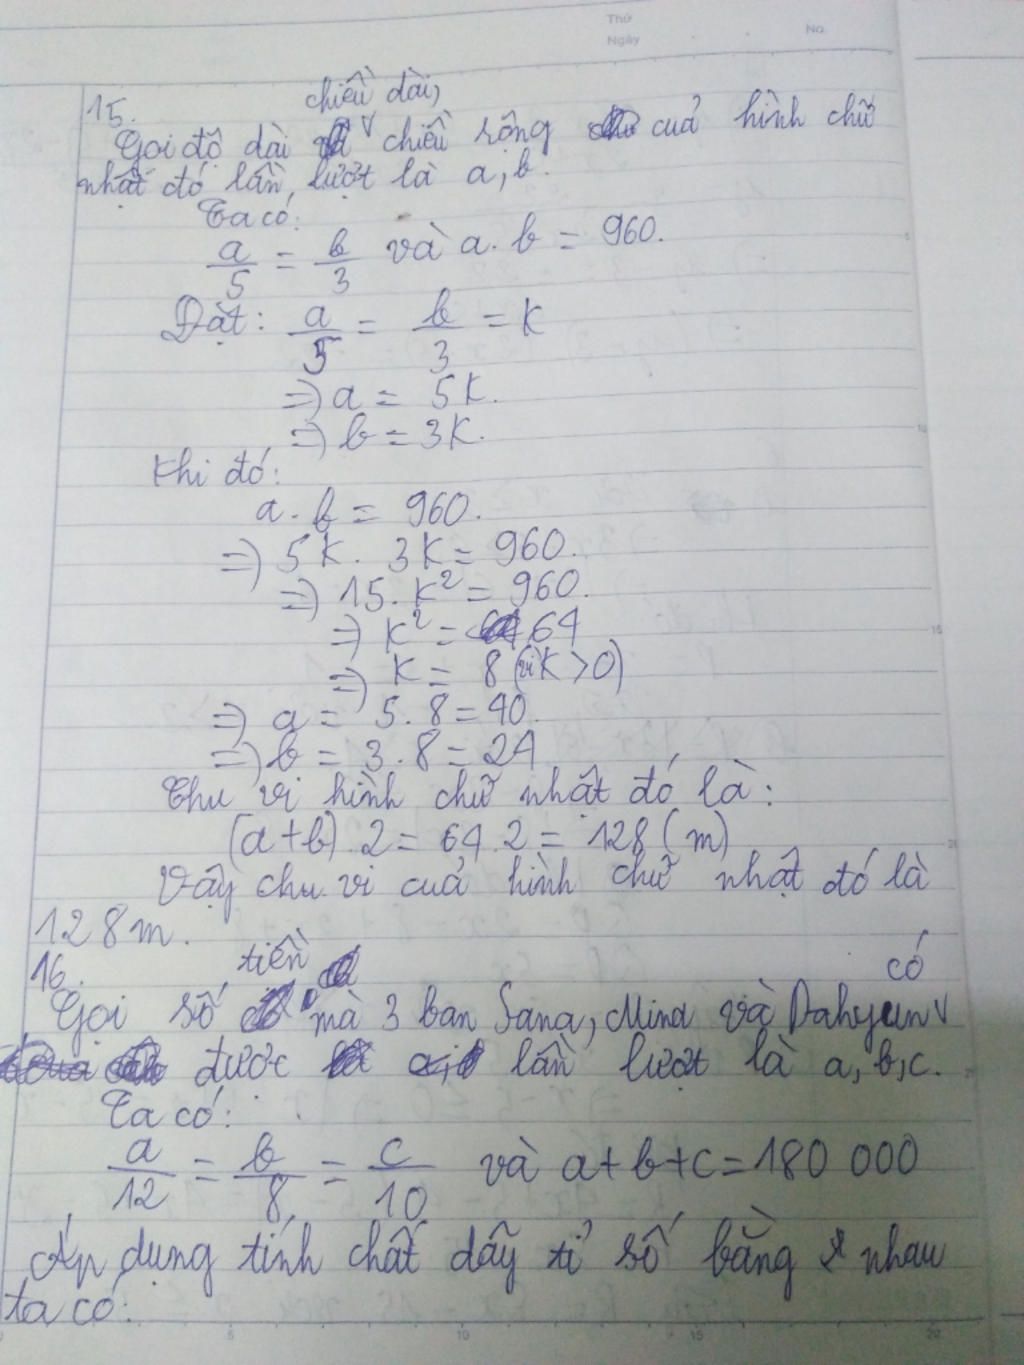 Thứ
Ngày
No.
15.
chiều dài,
Gọi độ dài v chiều rộng của hình chữ
nhật đó lần lượt là a, b.
Ta có:
a/5 = b/3 và a. b = 960.
Đặt: a/5 = b/3 = K
=> a = 5K.
=> b = 3K.
Khi đó:
a. b = 960.
=> 5K. 3K = 960.
=> 15. K² = 960.
=> K² = 64
=> K = 8 (vì K > 0)
=> a = 5. 8 = 40.
=> b = 3. 8 = 24
Chu vi hình chữ nhật đó là:
(a + b). 2 = 64. 2 = 128 (m)
Vậy chu vi của hình chữ nhật đó là
128m.
16.
tiền có
Gọi số mà 3 bạn Sana, Mina và Dahyun v
được lần lượt là a, b, c.
Ta có:
a/12 = b/8 = c/10 và a + b + c = 180 000
Áp dụng tính chất dãy tỉ số bằng nhau
ta có:
5 10 15 20